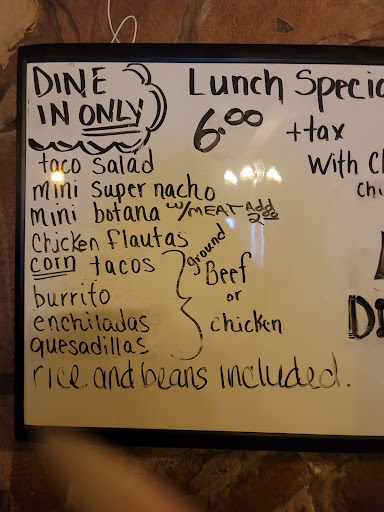 DINE
IN ONLY
Lunch Specia
6.00 + tax
With C
taco salad
mini super nacho
mini botana w/MEAT Add 2.00
Chicken flautas
corn tacos
burrito
enchiladas
quesadillas
ground
Beef
or
chicken
rice and beans included.